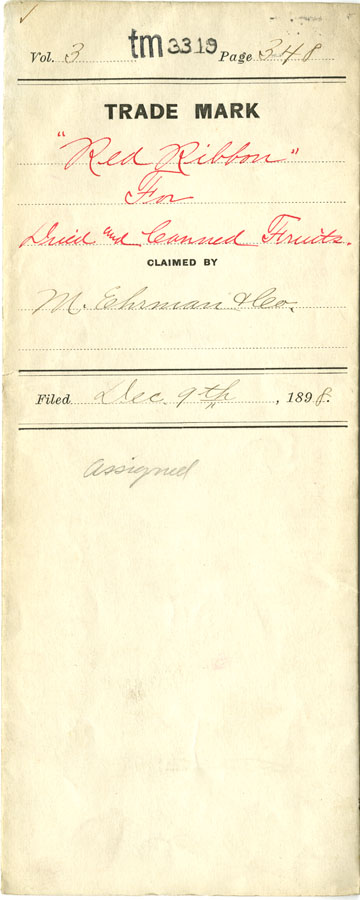 Vol. 3 tm 3319 Page 348
TRADE MARK
"Red Ribbon"
For
Dried and Canned Fruits.
CLAIMED BY
M. Ehrman & Co.
Filed Dec. 9th, 1898.
Assigned